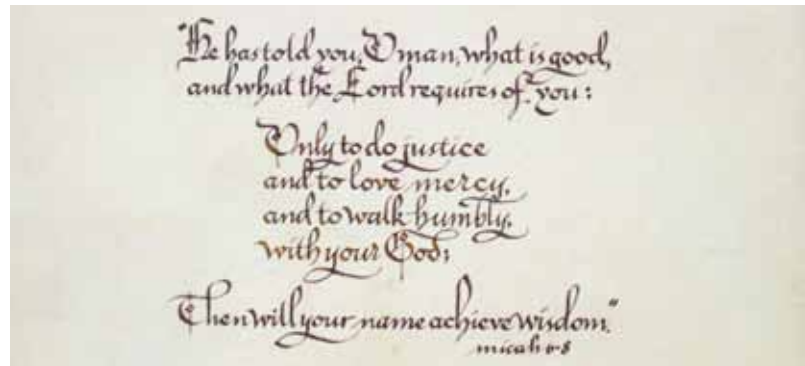 "He has told you, O man, what is good,
and what the Lord requires of you:
Only to do justice
and to love mercy,
and to walk humbly,
with your God;
Then will your name achieve wisdom."
micah 6-8